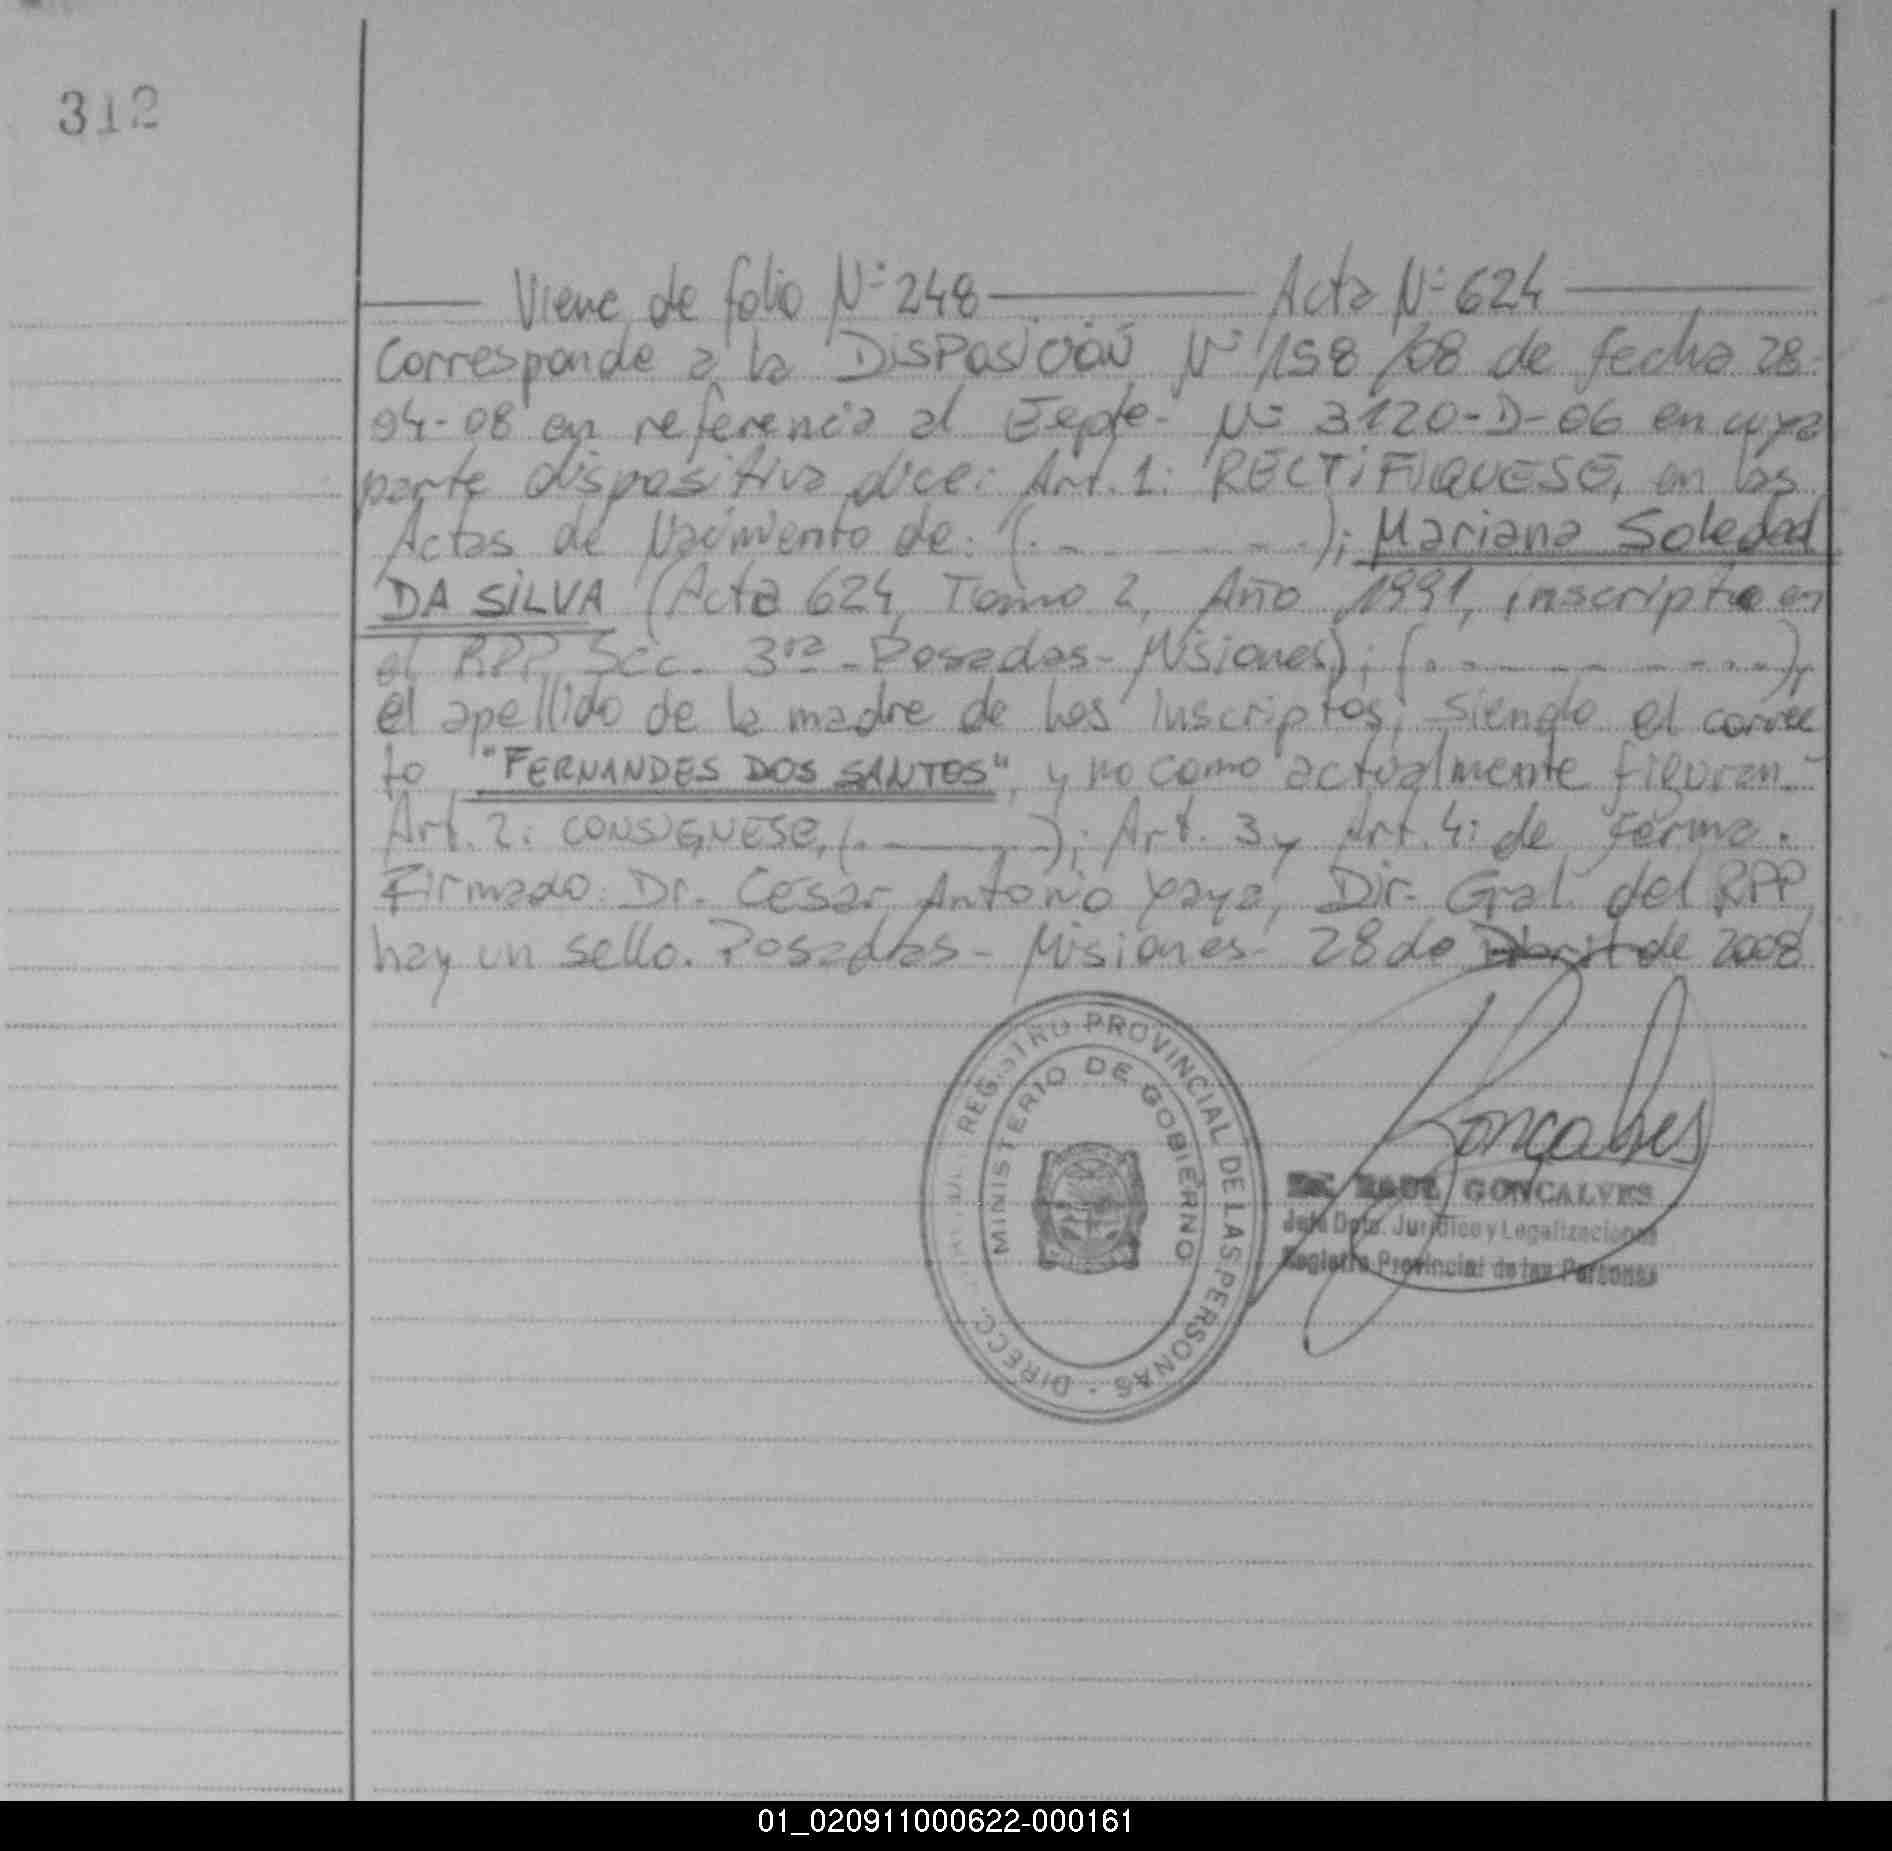 312
Viene de folio Nº 248 Acta Nº 624
Corresponde a la DISPOSICIÓN Nº 158/08 de fecha 28-
04-08 en referencia al Expte- Nº 3120-D-06 en cuya
parte dispositiva dice: Art. 1: RECTIFIQUESE, en las
Actas de Nacimiento de: (. - - - - - - -); Mariana Soledad
DA SILVA (Acta 624, Tomo 2, Año 1991, inscripta en
el RPP, Sec. 3ra - Posadas - Misiones); (. - - - - - - - -),
el apellido de la madre de los inscriptos, siendo el correc
to "FERNANDES DOS SANTOS", y no como actualmente figuran.-
Art. 2: CONSIGNESE, (. ———); Art. 3 y Art. 4: de forma.
Firmado: Dr. Cesar Antonio Yaya, Dir. Gral. del RPP,
hay un sello. Posadas - Misiones - 28 de Abril de 2008
REGISTRO PROVINCIAL DE LAS PERSONAS - DIRECC.
MINISTERIO DE GOBIERNO
Gonçalves
RAUL GONÇALVES
Jefe Dpto. Jurídico y Legalizaciones
Registro Provincial de las Personas
01_020911000622-000161